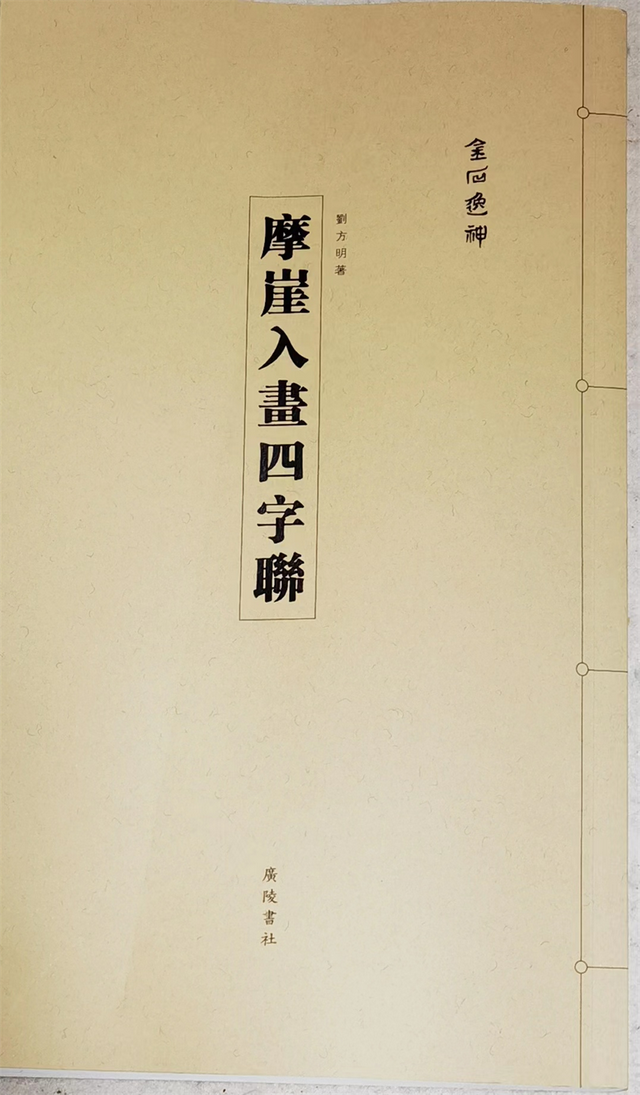 金石逸神
劉方明著
摩崖入畫四字聯
廣陵書社